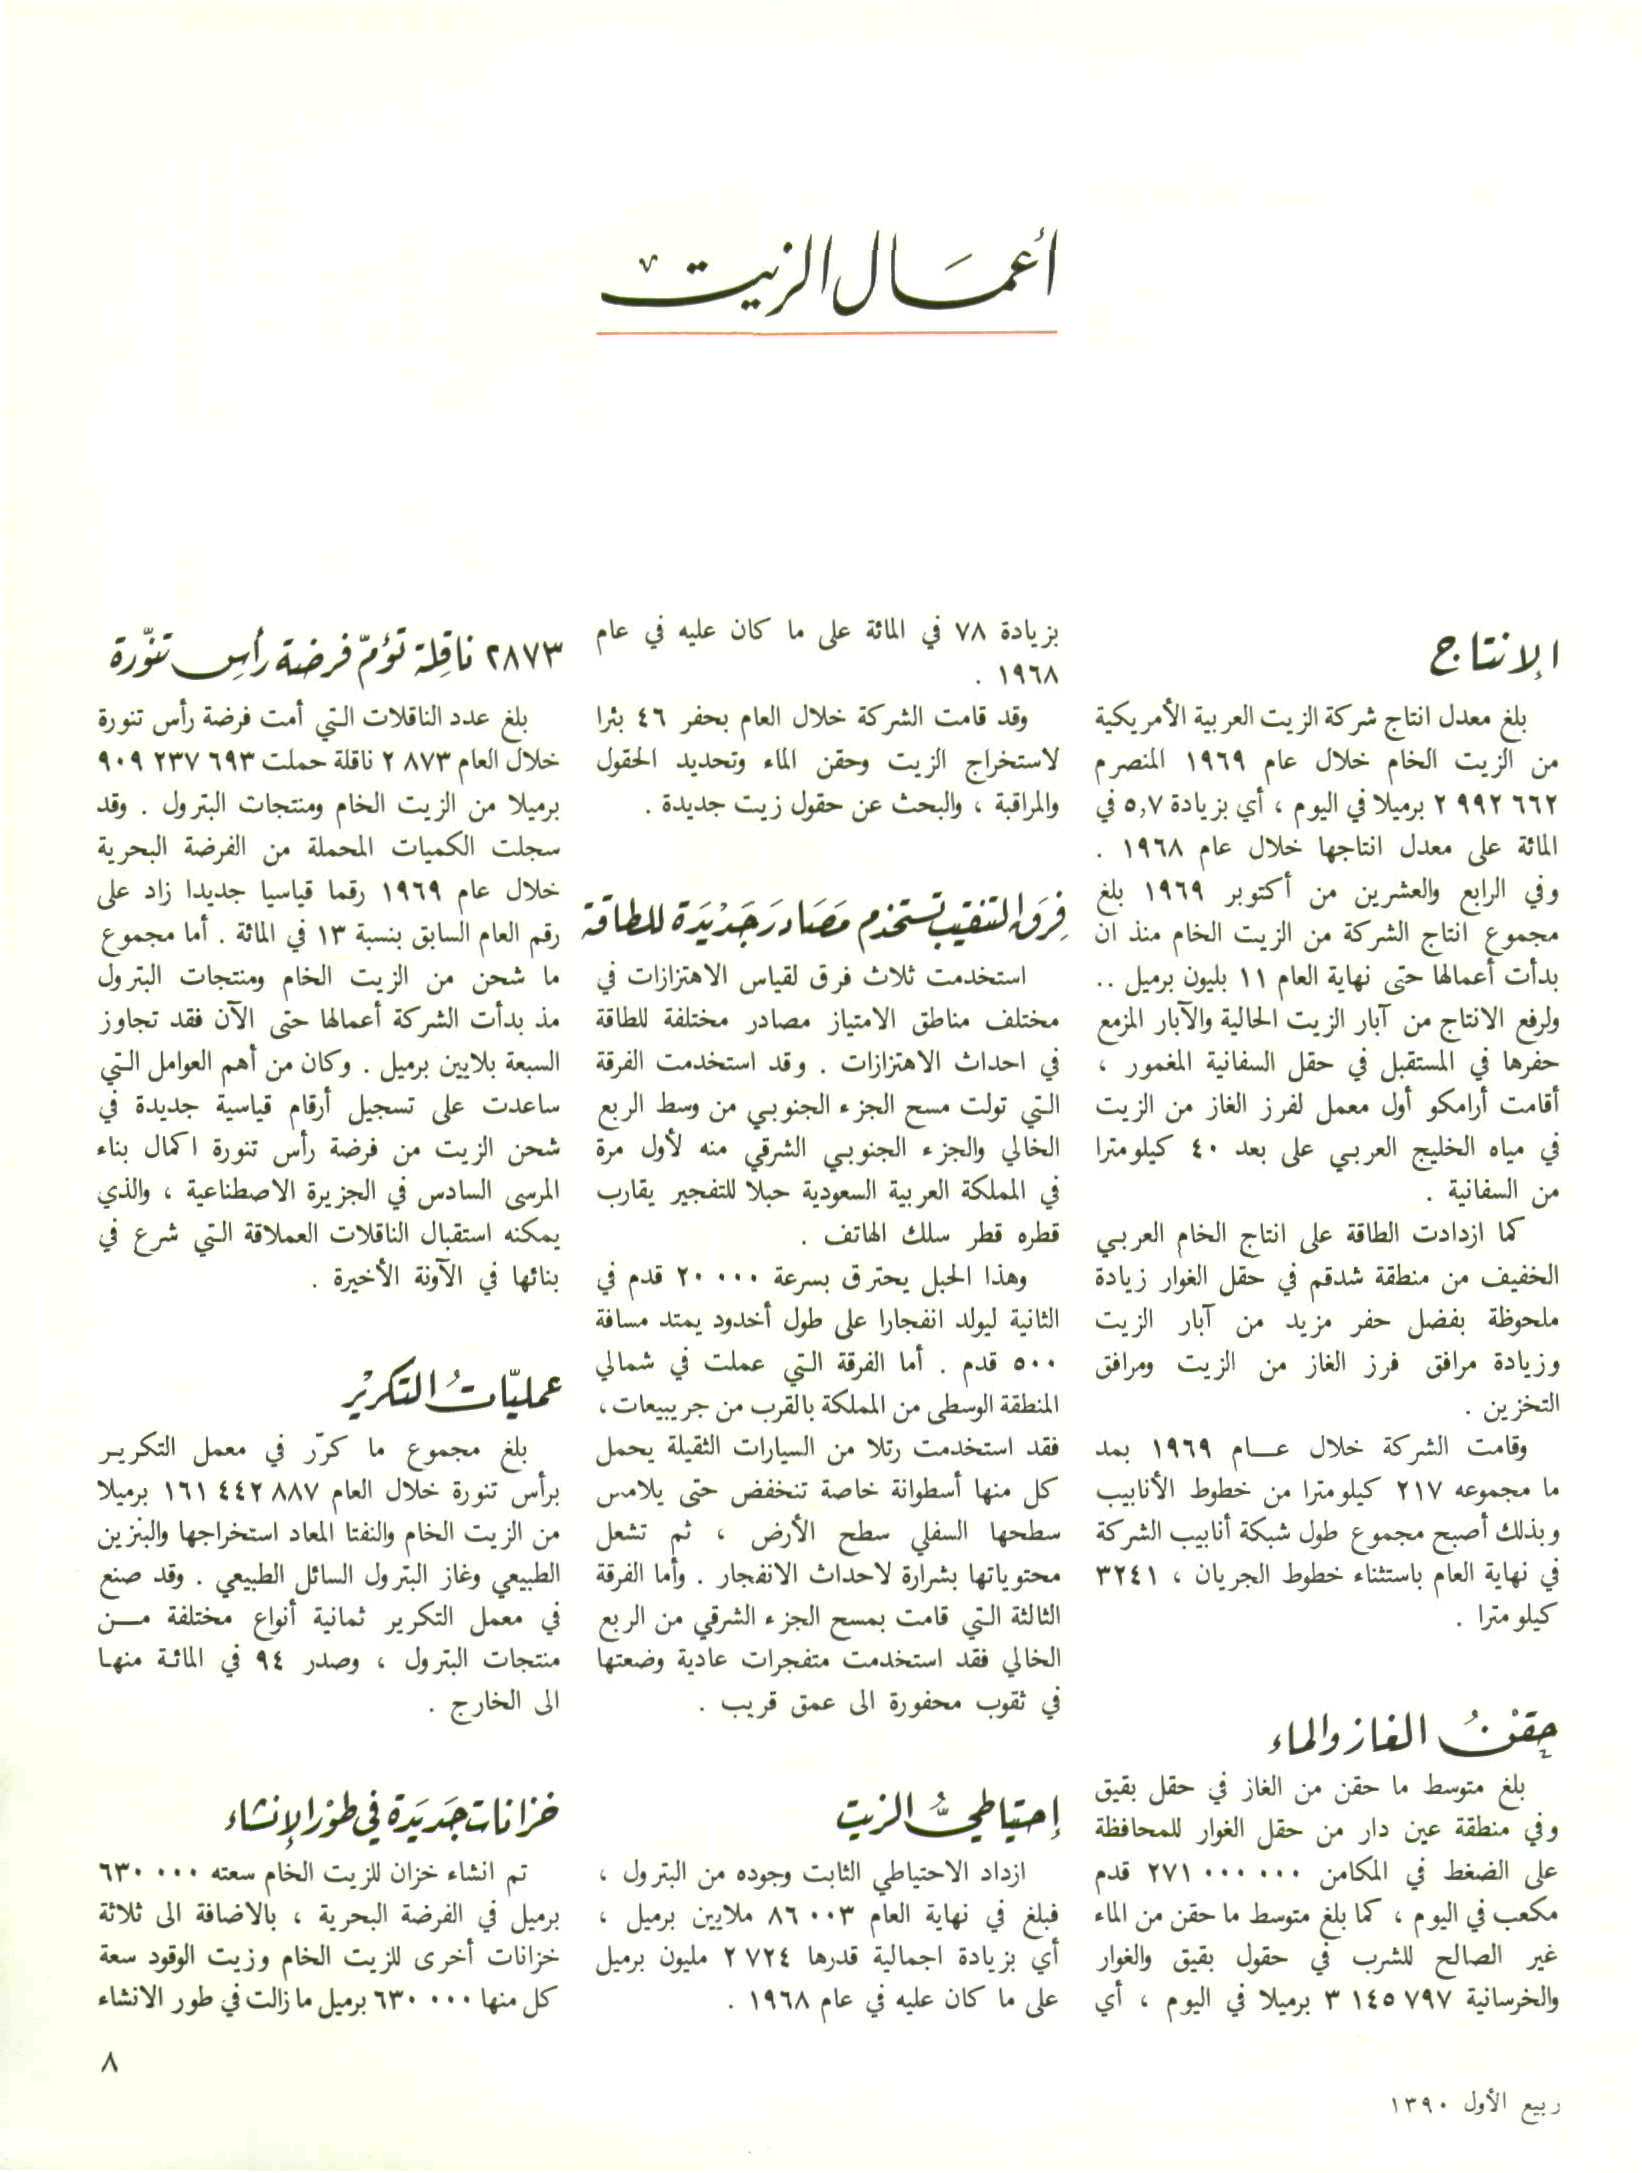 أعمال الزيت
الإنتاج
بلغ معدل انتاج شركة الزيت العربية الأمريكية
من الزيت الخام خلال عام ١٩٦٩ المنصرم
٢ ٩٩٢ ٦٦٢ برميلا في اليوم ، أي بزيادة ٥,٧ في
المائة على معدل انتاجها خلال عام ١٩٦٨ .
وفي الرابع والعشرين من أكتوبر ١٩٦٩ بلغ
مجموع انتاج الشركة من الزيت الخام منذ ان
بدأت أعمالها حتى نهاية العام ١١ بليون برميل ..
ولرفع الانتاج من آبار الزيت الحالية والآبار المزمع
حفرها في المستقبل في حقل السفانية المغمور ،
أقامت أرامكو أول معمل لفرز الغاز من الزيت
في مياه الخليج العربي على بعد ٤٠ كيلومترا
من السفانية .
كما ازدادت الطاقة على انتاج الخام العربي
الخفيف من منطقة شدقم في حقل الغوار زيادة
ملحوظة بفضل حفر مزيد من آبار الزيت
وزيادة مرافق فرز الغاز من الزيت ومرافق
التخزين .
وقامت الشركة خلال عام ١٩٦٩ بمد
ما مجموعه ٢١٧ كيلومترا من خطوط الأنابيب
وبذلك أصبح مجموع طول شبكة أنابيب الشركة
في نهاية العام باستثناء خطوط الجريان ، ٣٢٤١
كيلومترا .
حِقنُ الغاز والماء
بلغ متوسط ما حقن من الغاز في حقل بقيق
وفي منطقة عين دار من حقل الغوار للمحافظة
على الضغط في المكامن ٢٧١ ٠٠٠ ٠٠٠ قدم
مكعب في اليوم ، كما بلغ متوسط ما حقن من الماء
غير الصالح للشرب في حقول بقيق والغوار
والخرسانية ٣ ١٤٥ ٧٩٧ برميلا في اليوم ، أي
بزيادة ٧٨ في المائة على ما كان عليه في عام
١٩٦٨ .
وقد قامت الشركة خلال العام بحفر ٤٦ بئرا
لاستخراج الزيت وحقن الماء وتحديد الحقول
والمراقبة ، والبحث عن حقول زيت جديدة .
فِرَق التنقيب تستخدم مَصَادرَ جَديْدَة للطاقة
استخدمت ثلاث فرق لقياس الاهتزازات في
مختلف مناطق الامتياز مصادر مختلفة للطاقة
في احداث الاهتزازات . وقد استخدمت الفرقة
التي تولت مسح الجزء الجنوبي من وسط الربع
الخالي والجزء الجنوبي الشرقي منه لأول مرة
في المملكة العربية السعودية حبلا للتفجير يقارب
قطره قطر سلك الهاتف .
وهذا الحبل يحترق بسرعة ٢٠ ٠٠٠ قدم في
الثانية ليولد انفجارا على طول أخدود يمتد مسافة
٥٠٠ قدم . أما الفرقة التي عملت في شمالي
المنطقة الوسطى من المملكة بالقرب من جريبيعات،
فقد استخدمت رتلا من السيارات الثقيلة يحمل
كل منها أسطوانة خاصة تنخفض حتى يلامس
سطحها السفلي سطح الأرض ، ثم تشعل
محتوياتها بشرارة لاحداث الانفجار . وأما الفرقة
الثالثة التي قامت بمسح الجزء الشرقي من الربع
الخالي فقد استخدمت متفجرات عادية وضعتها
في ثقوب محفورة الى عمق قريب .
إحتياطيُّ الزيت
ازداد الاحتياطي الثابت وجوده من البترول ،
فبلغ في نهاية العام ٨٦ ٠٠٣ ملايين برميل ،
أي بزيادة اجمالية قدرها ٢ ٧٢٤ مليون برميل
على ما كان عليه في عام ١٩٦٨ .
٢٨٧٣ ناقِلة تؤمّ فرضة رأسِ تنّورة
بلغ عدد الناقلات التي أمت فرضة رأس تنورة
خلال العام ٢ ٨٧٣ ناقلة حملت ٦٩٣ ٢٣٧ ٩٠٩
برميلا من الزيت الخام ومنتجات البترول . وقد
سجلت الكميات المحملة من الفرضة البحرية
خلال عام ١٩٦٩ رقما قياسيا جديدا زاد على
رقم العام السابق بنسبة ١٣ في المائة . أما مجموع
ما شحن من الزيت الخام ومنتجات البترول
مذ بدأت الشركة أعمالها حتى الآن فقد تجاوز
السبعة بلايين برميل . وكان من أهم العوامل التي
ساعدت على تسجيل أرقام قياسية جديدة في
شحن الزيت من فرضة رأس تنورة اكمال بناء
المرسى السادس في الجزيرة الاصطناعية ، والذي
يمكنه استقبال الناقلات العملاقة التي شرع في
بنائها في الآونة الأخيرة .
عمليّاتُ التكريْر
بلغ مجموع ما كرّر في معمل التكرير
برأس تنورة خلال العام ١٦١ ٤٤٢ ٨٨٧ برميلا
من الزيت الخام والنفتا المعاد استخراجها والبنزين
الطبيعي وغاز البترول السائل الطبيعي . وقد صنع
في معمل التكرير ثمانية أنواع مختلفة من
منتجات البترول ، وصدر ٩٤ في المائة منها
الى الخارج .
خزانات جَديَدة في طوْر الإنشاء
تم انشاء خزان للزيت الخام سعته ٦٣٠ ٠٠٠
برميل في الفرضة البحرية ، بالاضافة الى ثلاثة
خزانات أخرى للزيت الخام وزيت الوقود سعة
كل منها ٦٣٠ ٠٠٠ برميل ما زالت في طور الانشاء
٨
ربيع الأول ١٣٩٠